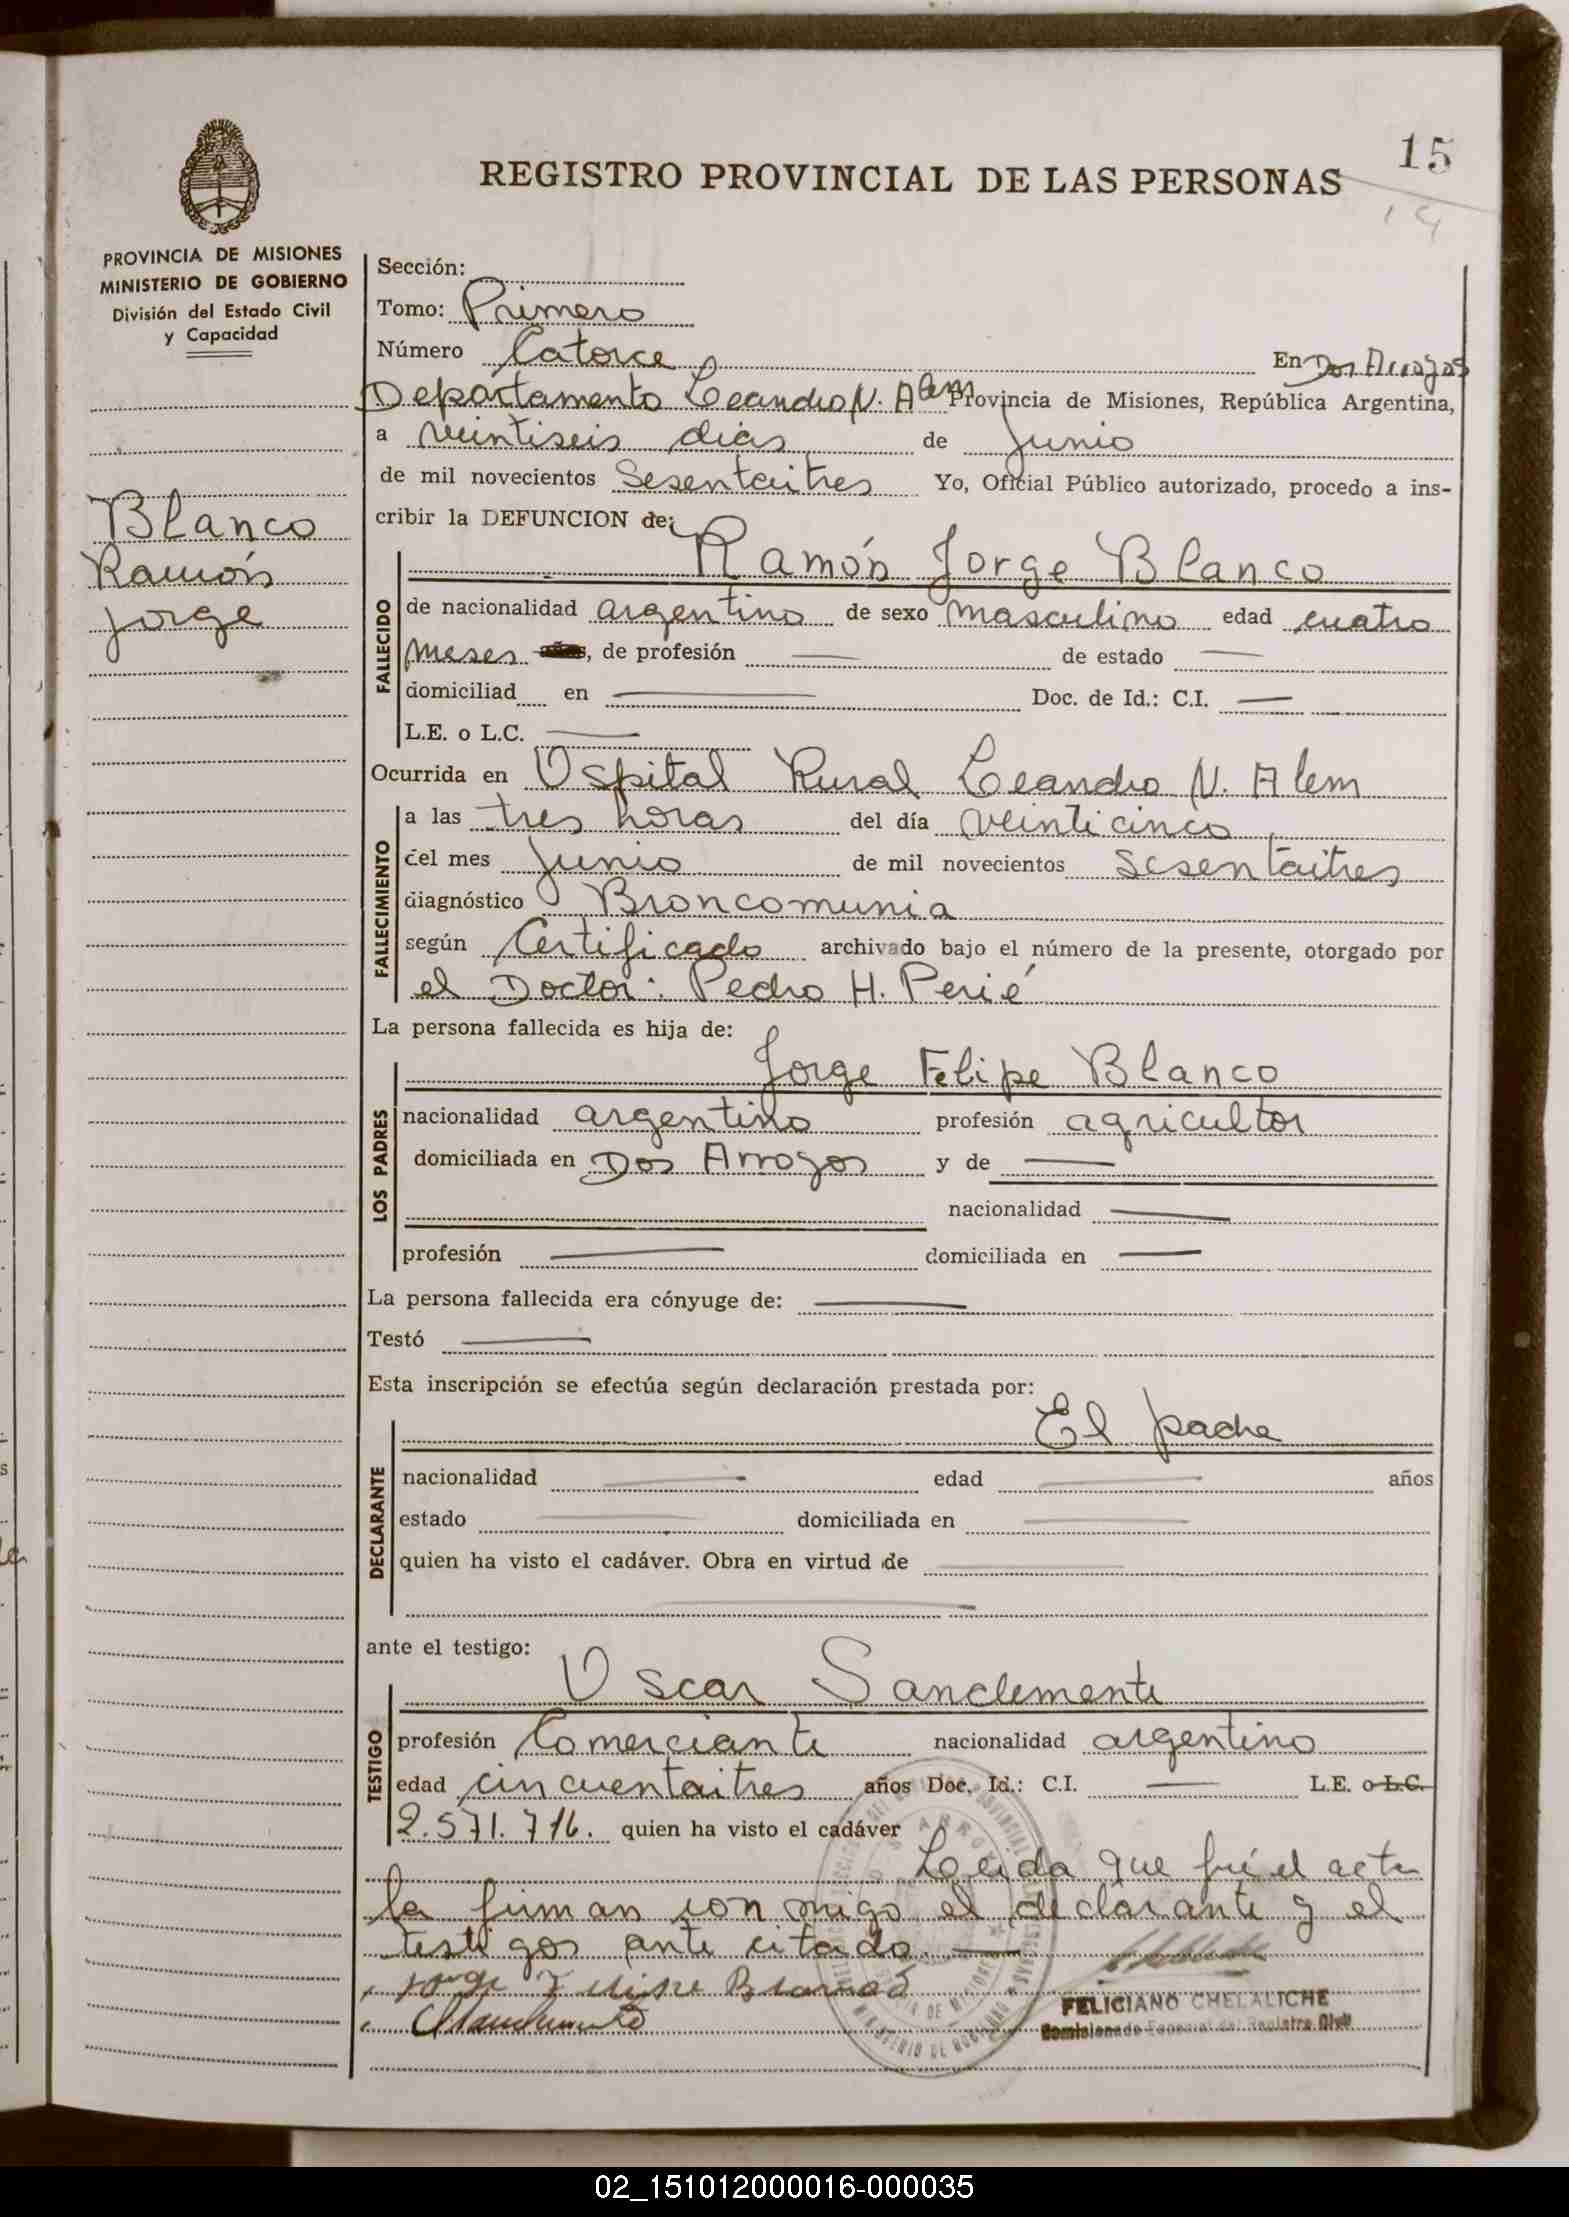 15
14
REGISTRO PROVINCIAL DE LAS PERSONAS
PROVINCIA DE MISIONES
MINISTERIO DE GOBIERNO
División del Estado Civil
y Capacidad
Blanco
Ramón
Jorge
Sección:
Tomo: Primero
Número Catorce En Dos Arroyos
Departamento Leandro N. Alem Provincia de Misiones, República Argentina,
a veintiseis dias de Junio
de mil novecientos Sesentaitres Yo, Oficial Público autorizado, procedo a ins-
cribir la DEFUNCION de:
Ramón Jorge Blanco
FALLECIDO
de nacionalidad argentino de sexo masculino edad cuatro
meses años, de profesión — de estado —
domiciliad en — Doc. de Id.: C.I. —
L.E. o L.C. —
Ocurrida en Ospital Rural Leandro N. Alem
FALLECIMIENTO
a las tres horas del día veinticinco
del mes Junio de mil novecientos sesentaitres
diagnóstico Broncomunia
según Certificado archivado bajo el número de la presente, otorgado por
el Doctor: Pedro H. Perié
La persona fallecida es hija de:
Jorge Felipe Blanco
LOS PADRES
nacionalidad argentino profesión agricultor
domiciliada en Dos Arroyos y de —
nacionalidad —
profesión — domiciliada en —
La persona fallecida era cónyuge de: —
Testó —
Esta inscripción se efectúa según declaración prestada por:
El padre
DECLARANTE
nacionalidad — edad — años
estado — domiciliada en —
quien ha visto el cadáver. Obra en virtud de —
ante el testigo:
Oscar Sanclemente
TESTIGO
profesión Comerciante nacionalidad argentino
edad cincuentaitres años Doc. Id.: C.I. — L.E. o L.C.
2.571.716. quien ha visto el cadáver
Leida que fué el acta
la firman conmigo el declarante y el
testigos ante citado. —
Jorge Felipe Blanco
FELICIANO CHELALICHE
Comisionado Especial del Registro Civil
02_151012000016-000035